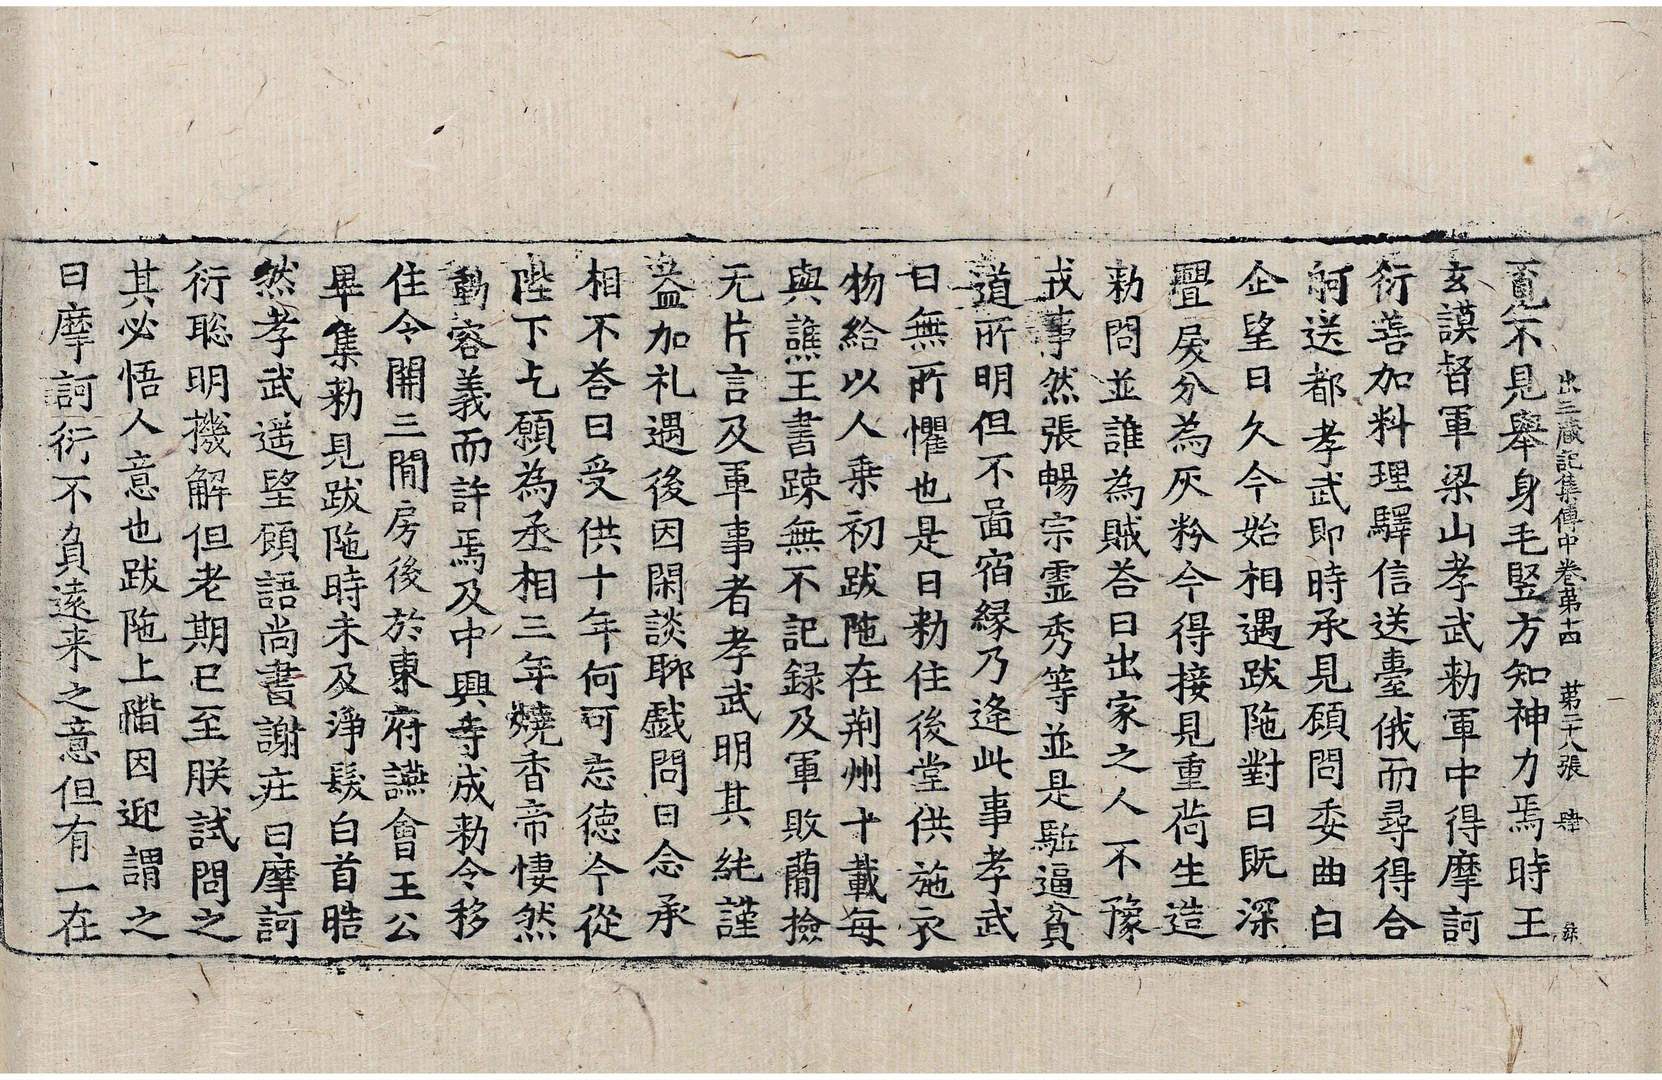 覓不見舉身毛竪方知神力焉時王
出三藏記集傳中卷第十四 第二十八張 肆
玄謨督軍梁山孝武勑軍中得摩訶
衍善加料理驛信送臺俄而尋得合
舸送都孝武即時承見顧問委曲白
企望日久今始相遇跋陁對曰既深
舋戾分為灰粉今得接見重荷生造
勑問並誰為賊荅曰出家之人不豫
戎事然張暢宗霊秀等並是駈逼貧
道所明但不啚宿縁乃逢此事孝武
曰無所懼也是日勑住後堂供施衣
物給以人乗初跋陁在荆州十載每
與譙王書踈無不記録及軍敗蕳撿
无片言及軍事者孝武明其純謹
益加礼遇後因閑談聊戯問曰念承
相不荅曰受供十年何可忘德今從
陛下乞願為丞相三年燒香帝悽然
動容義而許焉及中興寺成勑令移
住令開三間房後於東府讌會王公
畢集勑見跋陁時未及淨髮白首皓
然孝武遥望顧語尚書謝莊曰摩訶
衍聡明機解但老期已至朕試問之
其必悟人意也跋陁上階因迎謂之
曰摩訶衍不負遠来之意但有一在